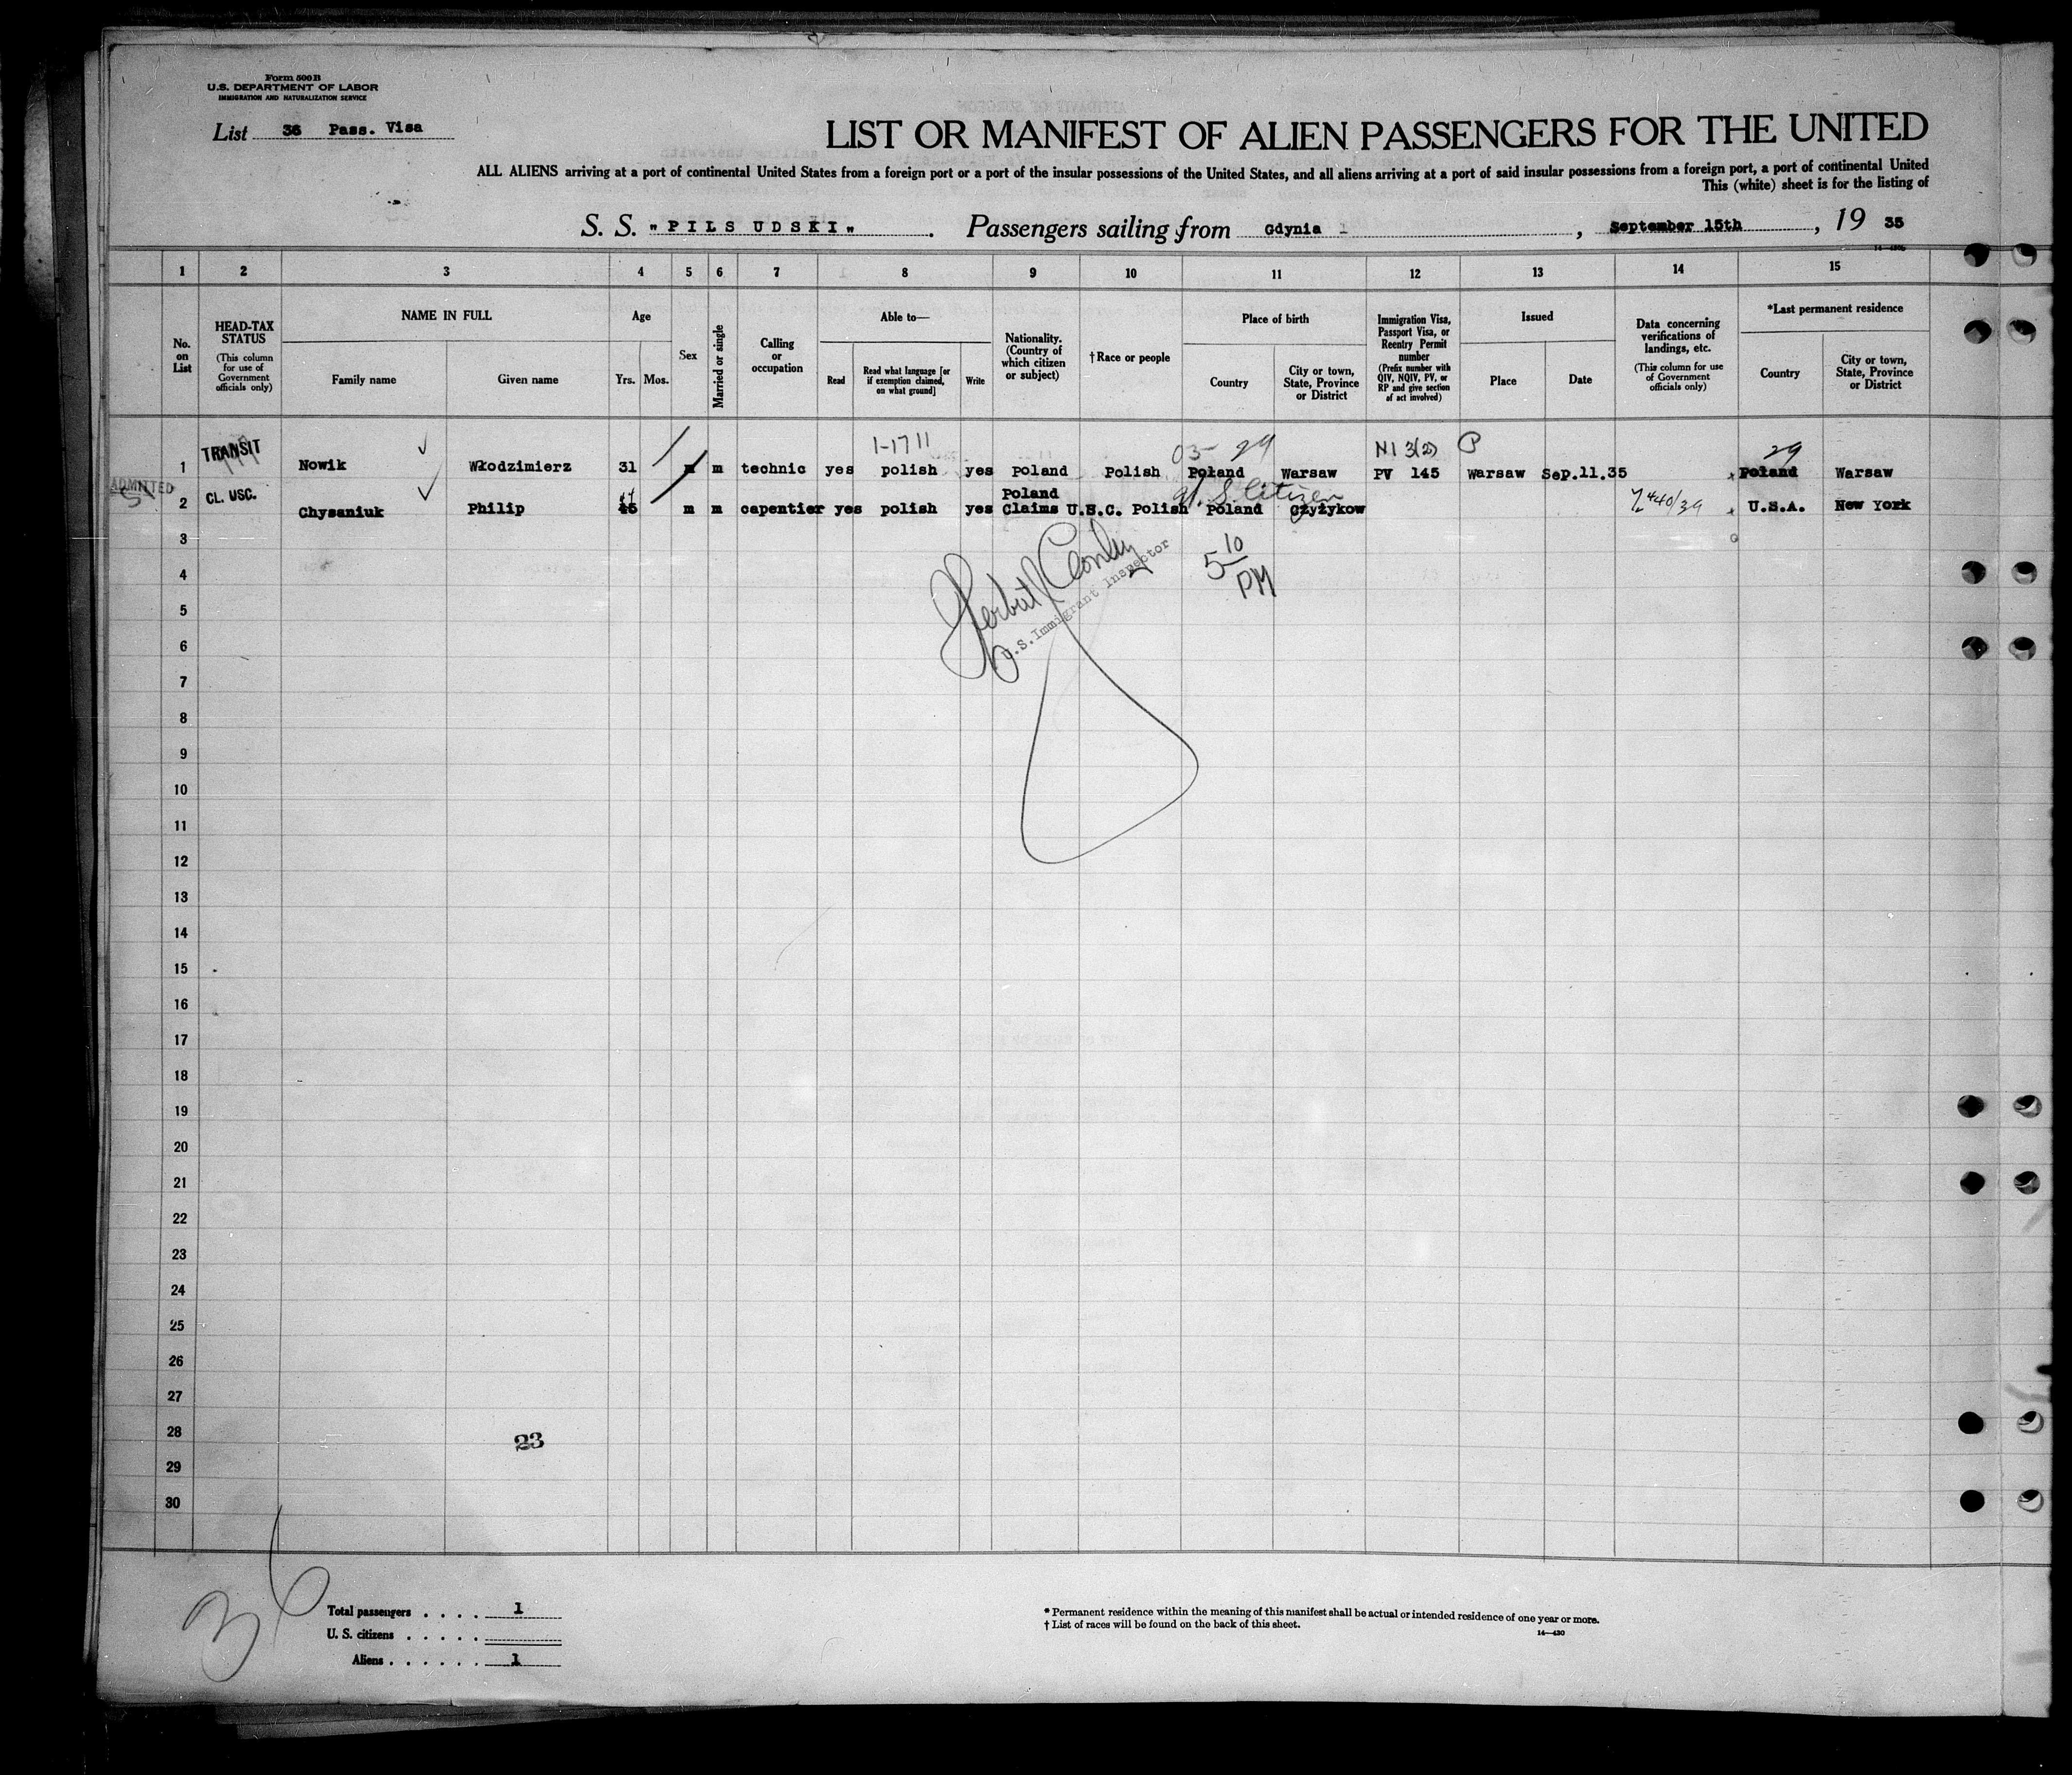 Form 500 B
U.S. DEPARTMENT OF LABOR
IMMIGRATION AND NATURALIZATION SERVICE
List 36 Pass. Visa
LIST OR MANIFEST OF ALIEN PASSENGERS FOR THE UNITED
ALL ALIENS arriving at a port of continental United States from a foreign port or a port of the insular possessions of the United States, and all aliens arriving at a port of said insular possessions from a foreign port, a port of continental United
This (white) sheet is for the listing of
S. S. "PILSUDSKI" . Passengers sailing from Gdynia , September 15th , 19 35
1 2 3 4 5 6 7 8 9 10 11 12 13 14 15
No. on List
HEAD-TAX STATUS (This column for use of Government officials only)
NAME IN FULL
Family name
Given name
Age
Yrs. Mos.
Sex
Married or single
Calling or occupation
Able to—
Read
Read what language [or if exemption claimed, on what ground]
Write
Nationality. (Country of which citizen or subject)
†Race or people
Place of birth
Country
City or town, State, Province or District
Immigration Visa, Passport Visa, or Reentry Permit number (Prefix number with QIV, NQIV, PV, or RP and give section of act involved)
Issued
Place
Date
Data concerning verifications of landings, etc. (This column for use of Government officials only)
*Last permanent residence
Country
City or town, State, Province or District
1-1711 03- 29 NI 3(2) P 29
1 TRANSIT Nowik Włodzimierz 31 m m technic yes polish yes Poland Polish Poland Warsaw PV 145 Warsaw Sep.11.35 Poland Warsaw
ADMITTED
U. S. Citizen
2 CL. USC. Chysaniuk Philip 45 m m capentier yes polish yes Poland Claims U.S.C. Polish Poland Czyżykow U.S.A. New York
3
4
5
6
7
8
9
10
11
12
13
14
15
16
17
18
19
20
21
22
23
24
25
26
27
28
29
30
U.S. Immigrant Inspector
5 10 PM
23
36
Total passengers . . . . 1
U. S. citizens . . . . .
Aliens . . . . . . 1
* Permanent residence within the meaning of this manifest shall be actual or intended residence of one year or more.
† List of races will be found on the back of this sheet.
14—430